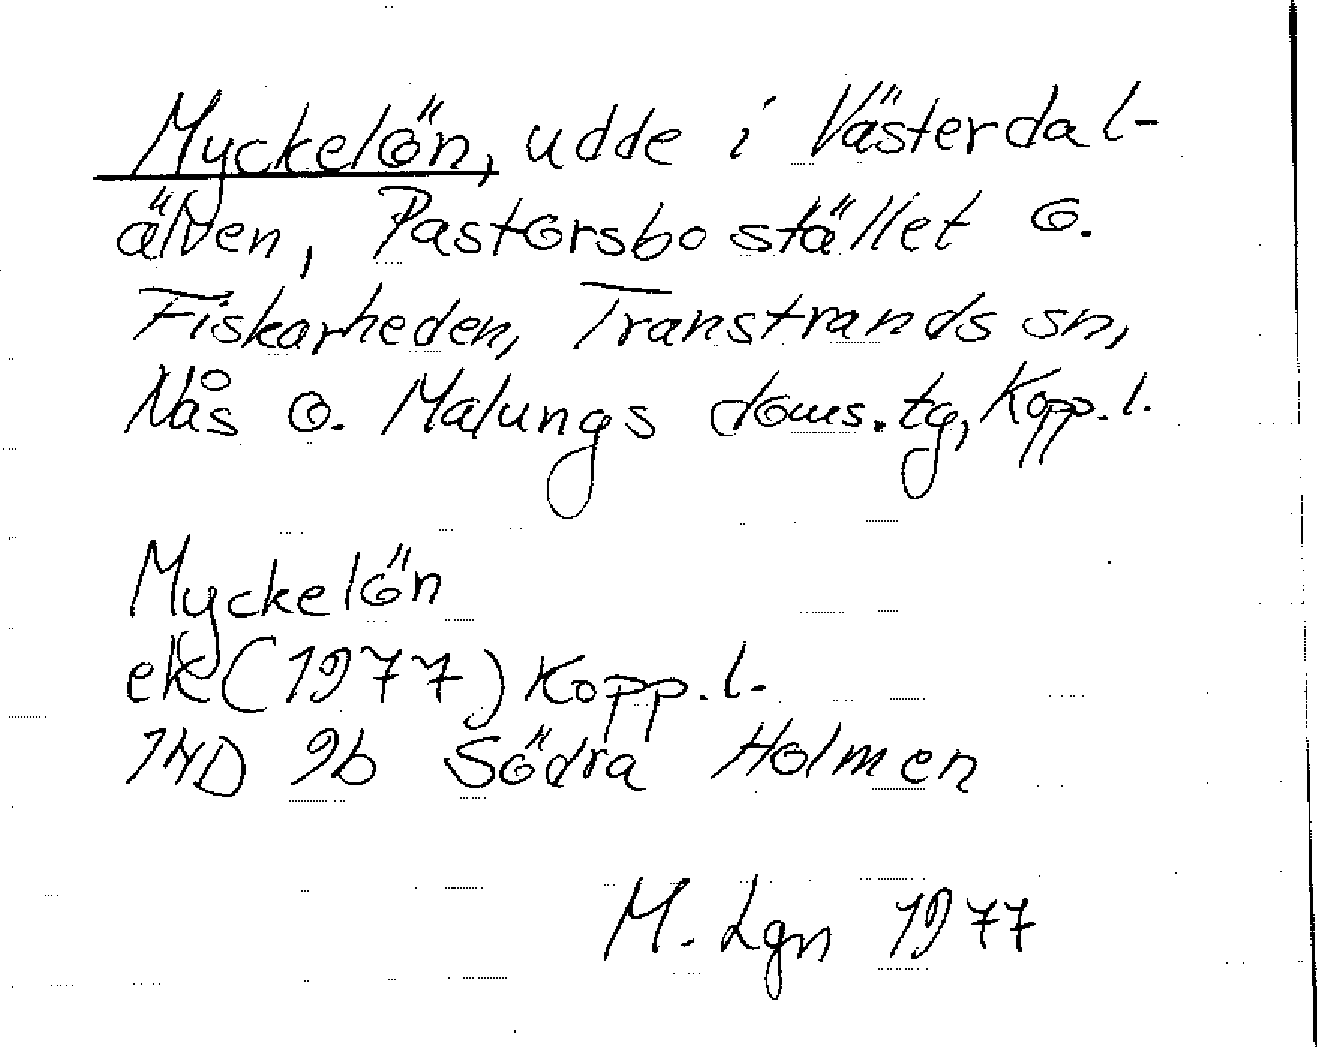 Myckelön, udde i Västerdal-
älven, Pastorsbostället o.
Fiskarheden, Transtrands sn,
Nås o. Malungs doms.tg, Kopp.l.
Myckelön
ek (1977) Kopp.l.
14D 9b Södra Holmen
M. Lgn 1977